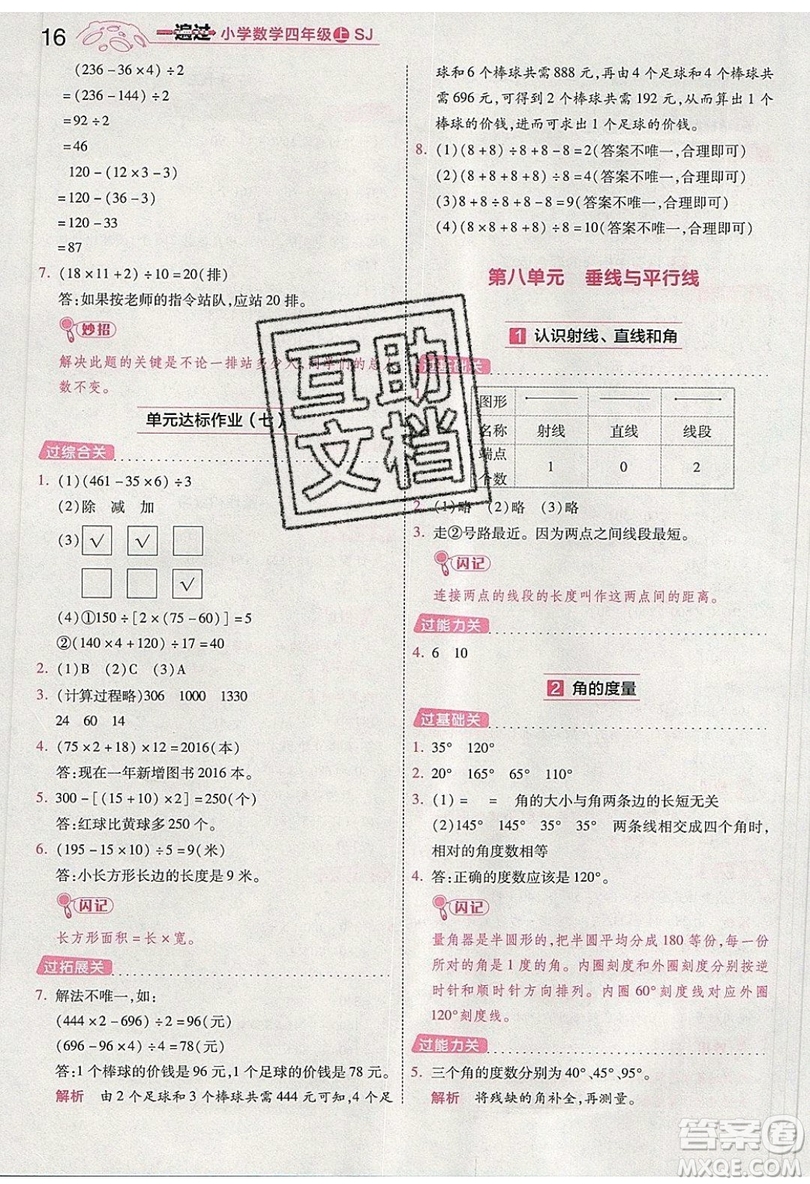 16 一遍过 小学数学四年级上 SJ
(236-36×4)÷2
=(236-144)÷2
=92÷2
=46
120-(12×3-3)
=120-(36-3)
=120-33
=87
7. (18×11+2)÷10=20(排)
答:如果按老师的指令站队,应站 20 排。
妙招
解决此题的关键是不论一排站多少人,
数不变。
单元达标作业(七)
过综合关
1. (1)(461-35×6)÷3
(2)除 减 加
(3) √ √
√
(4)①150÷[2×(75-60)]=5
②(140×4+120)÷17=40
2. (1)B (2)C (3)A
3. (计算过程略)306 1000 1330
24 60 14
4. (75×2+18)×12=2016(本)
答:现在一年新增图书 2016 本。
5. 300-[(15+10)×2]=250(个)
答:红球比黄球多 250 个。
6. (195-15×10)÷5=9(米)
答:小长方形长边的长度是 9 米。
闪记
长方形面积=长×宽。
过拓展关
7. 解法不唯一,如:
(444×2-696)÷2=96(元)
(696-96×4)÷4=78(元)
答:1 个棒球的价钱是 96 元,1 个足球的价钱是 78 元。
解析 由 2 个足球和 3 个棒球共需 444 元,可知 4 个足
球和 6 个棒球共需 888 元,再由 4 个足球和 4 个棒球共
需 696 元,可得 2 个棒球共需 192 元,从而算出 1 个
棒球的价钱,进而可求出 1 个足球的价钱。
8. (1)(8+8)÷8+8-8=2(答案不唯一,合理即可)
(2)(8+8+8)÷8-8÷8=2(答案不唯一,合理即可)
(3)8+8÷8+8-8=9(答案不唯一,合理即可)
(4)(8+8)÷8+8+8=18(答案不唯一,合理即可)
第八单元 垂线与平行线
1 认识射线、直线和角
关
图形
名称 射线 直线 线段
端点
个数 1 0 2
2. (1)略 (2)略 (3)略
3. 走②号路最近。因为两点之间线段最短。
闪记
连接两点的线段的长度叫作这两点间的距离。
过能力关
4. 6 10
2 角的度量
过基础关
1. 35° 120°
2. 20° 165° 65° 110°
3. (1)= = 角的大小与角两条边的长短无关
(2)145° 145° 两条线相交成四个角时,
相对的角度数相等
4. 答:正确的度数应该是 120°。
闪记
量角器是半圆形的,把半圆平均分成 180 等份,每一份
所对的角是 1 度的角。内圈刻度和外圈刻度分别按逆
时针和顺时针方向排列。内圈 60°刻度线对应外圈
120°刻度线。
过能力关
5. 三个角的度数分别为 40°、45°、95°。
解析 将残缺的角补全,再测量。
互助
文档
答案圈
MXQE.COM